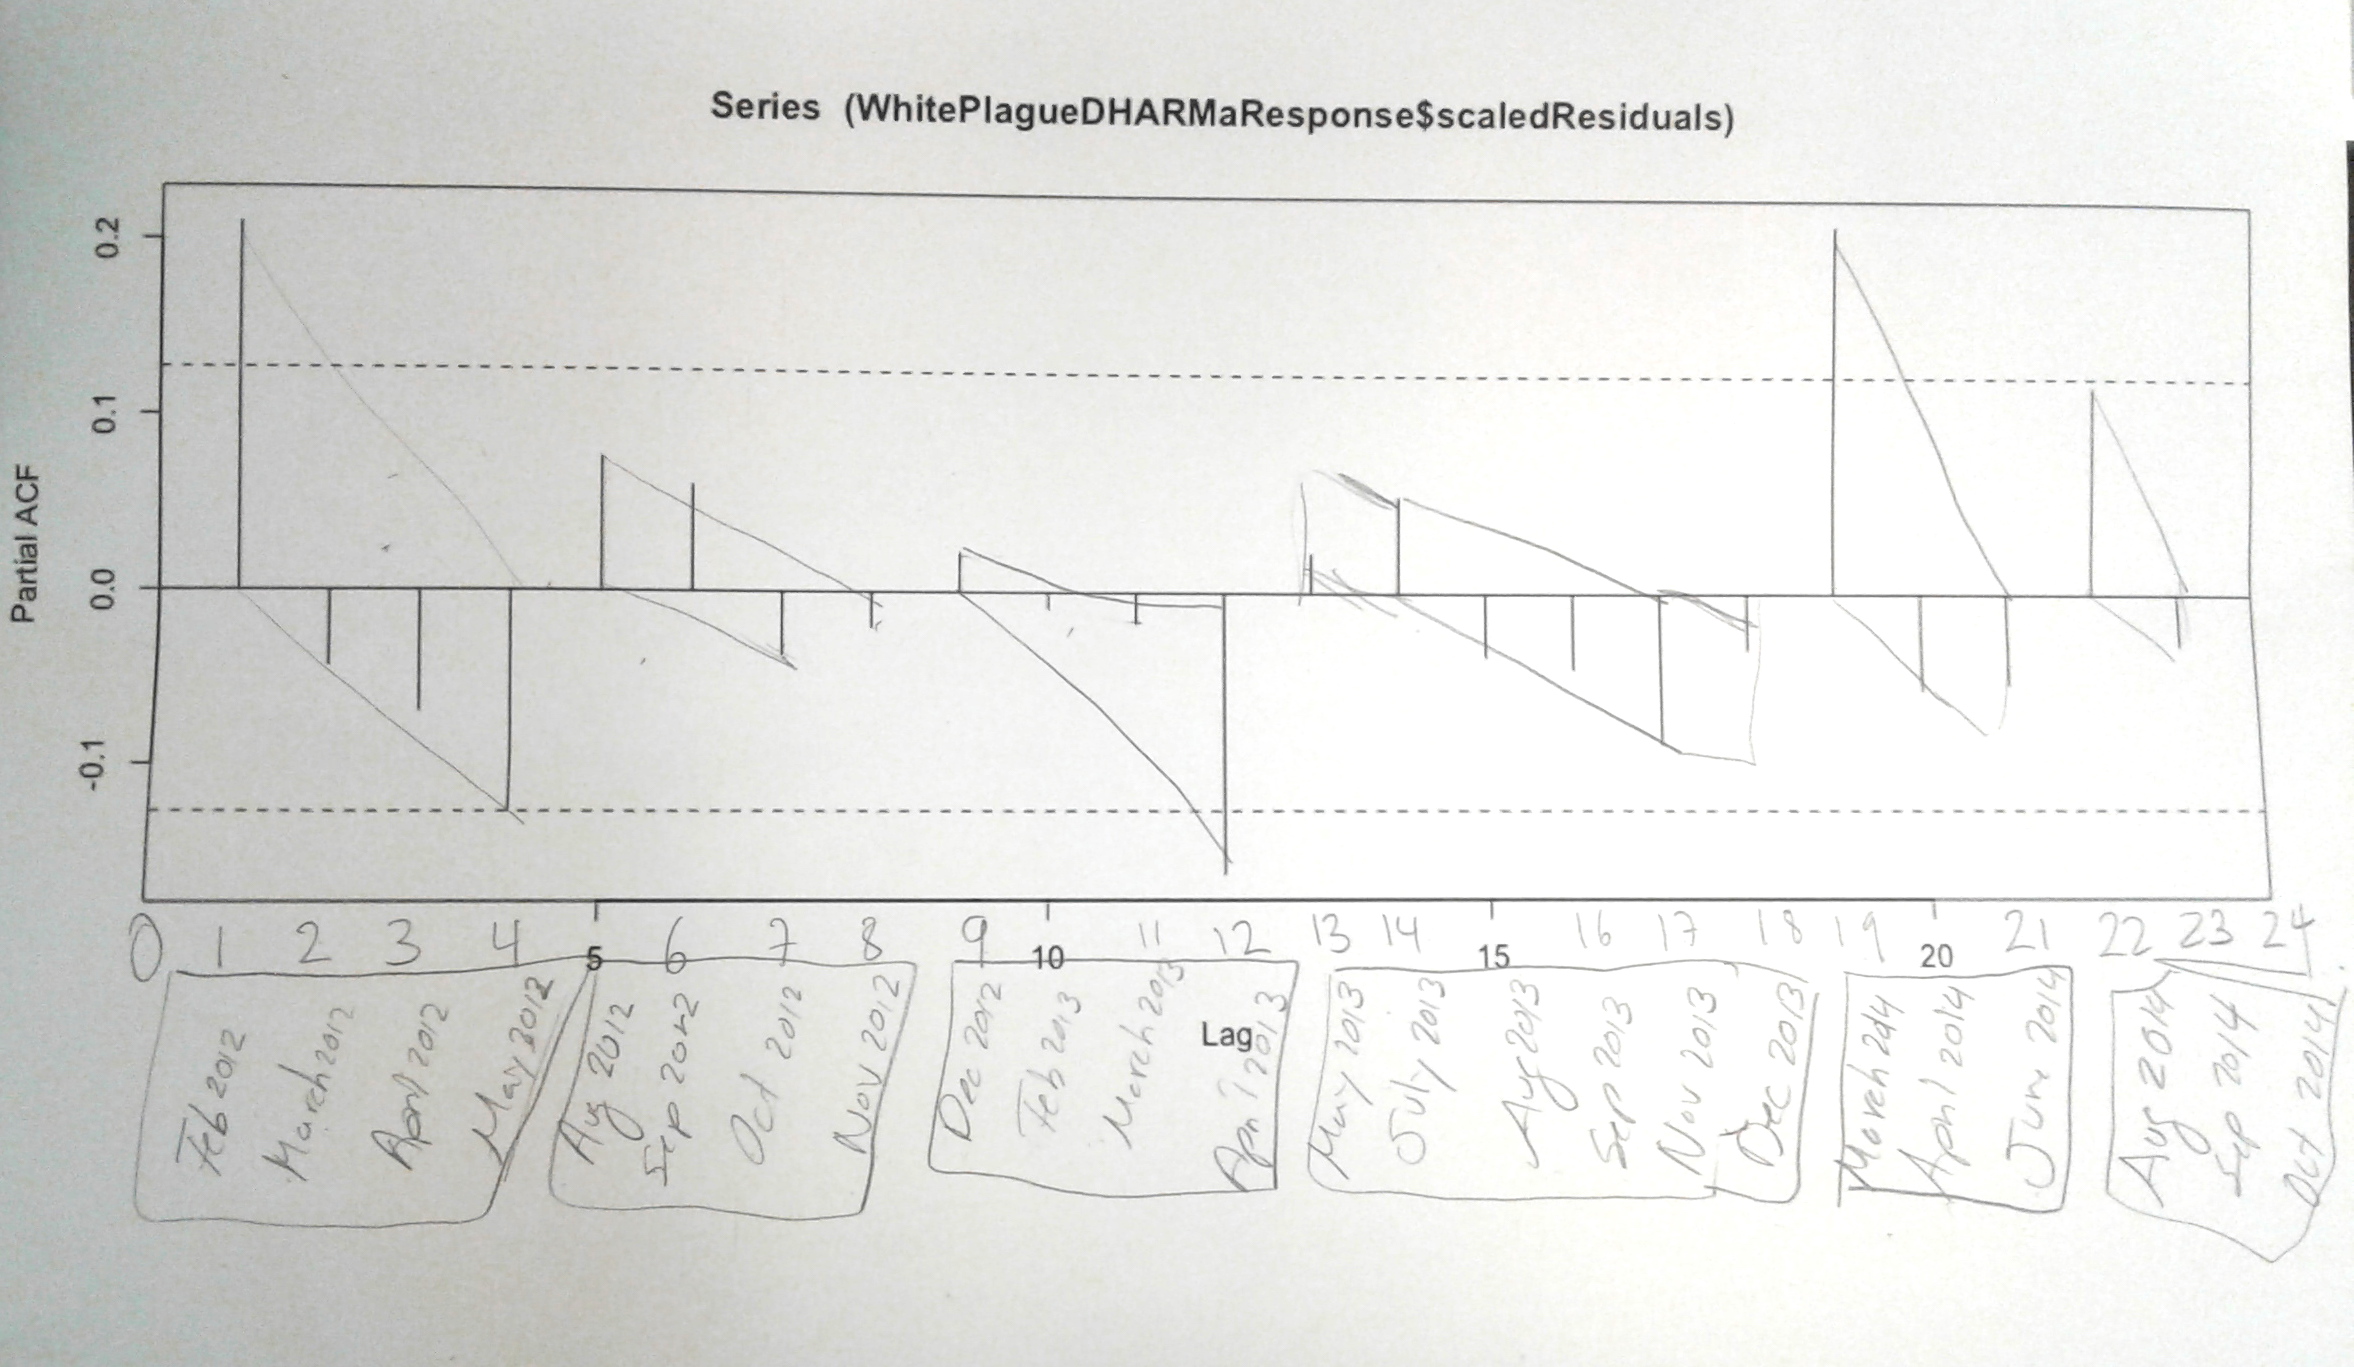 Series (WhitePlagueDHARMaResponse$scaledResiduals)
Partial ACF
0.2
0.1
0.0
-0.1
0 1 2 3 4 5 6 7 8 9 10 11 12 13 14 15 16 17 18 19 20 21 22 23 24
Lag
Feb 2012
March 2012
April 2012
May 2012
Aug 2012
Sep 2012
Oct 2012
Nov 2012
Dec 2012
Feb 2013
March 2013
April 2013
May 2013
July 2013
Aug 2013
Sep 2013
Nov 2013
Dec 2013
March 2014
April 2014
June 2014
Aug 2014
Sep 2014
Oct 2014